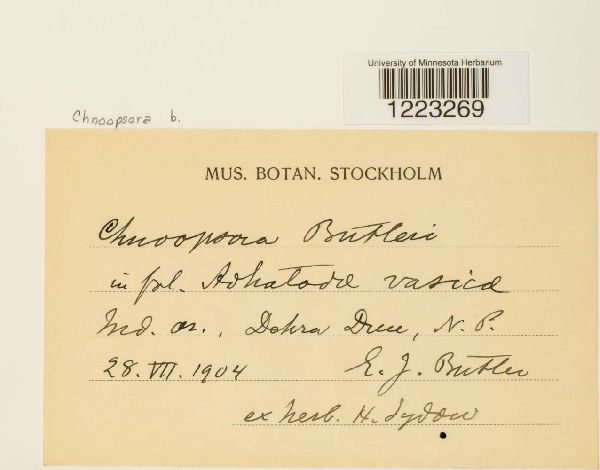 University of Minnesota Herbarium
1223269
Chnoopsora b.
MUS. BOTAN. STOCKHOLM
Chnoopsora Butleri
in fol. Adhatodæ vasicæ
Ind. or., Dehra Dun, N. P.
28. VII. 1904 E. J. Butler
ex herb. H. Sydow